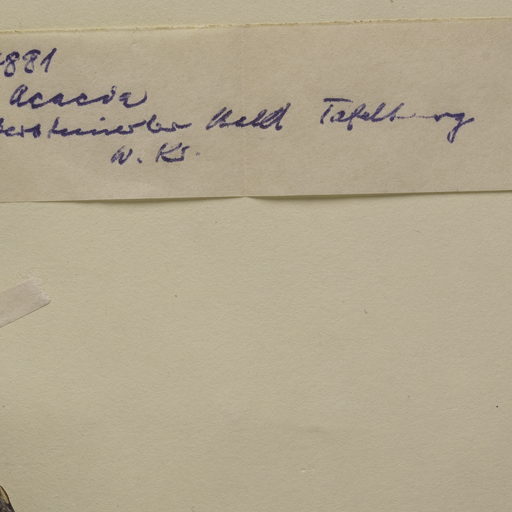 881
Acacia
Versteinerter Wald Tafelberg
W. Kr.